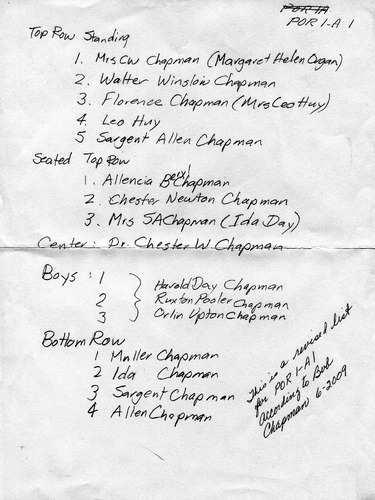 POR 1A
POR 1-A 1
Top Row Standing
1. Mrs CW Chapman (Margaret Helen Organ)
2. Walter Winslow Chapman
3. Florence Chapman (Mrs Leo Huy)
4. Leo Huy
5 Sargent Allen Chapman
Seated Top Row
1. Allencia Chapman
2. Chester Newton Chapman
3. Mrs SA Chapman (Ida Day)
Center: Dr. Chester W Chapman
Boys: 1 Harold Day Chapman
2 Ruxton Pooler Chapman
3 Orlin Upton Chapman
Bottom Row
1 Miller Chapman
2 Ida Chapman
3 Sargent Chapman
4 Allen Chapman
This is a revised list
for POR 1-A1
According to Bob
Chapman 6-2009